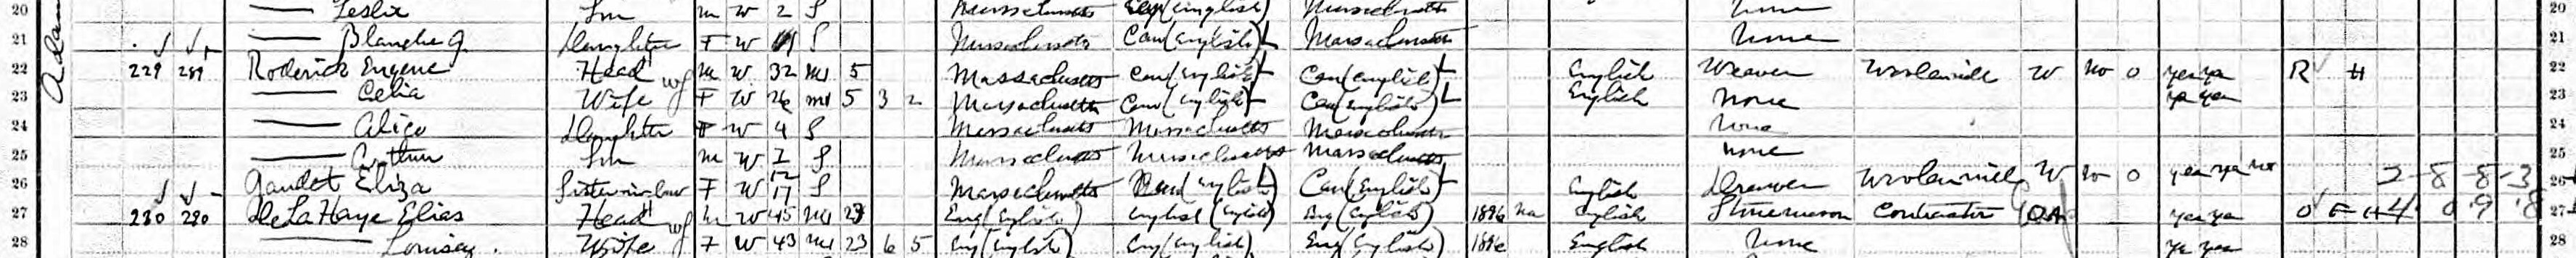 20 Leslie Son m W 2 S Massachusetts Can (English) Massachusetts None 20
21 Blanche G. Daughter F W S Massachusetts Can (English) Massachusetts None 21
22 229 289 Roderick Eugene Head m W 32 M1 5 Massachusetts Can (English) Can (English) English Weaver Woolen mill W No 0 yes yes R H 22
23 Celia Wife F W 26 M1 5 3 2 Massachusetts Can (English) Can (English) English None yes yes 23
24 Alice Daughter F W 4 S Massachusetts Massachusetts Massachusetts None 24
25 Arthur Son m W S Massachusetts Massachusetts Massachusetts None 25
26 Gaudet Eliza Sister in law F W 17 S Massachusetts Can (English) Can (English) English Drawer Woolen mill W no 0 yes yes no 2-8-8-3 26
27 230 290 De La Haye Elias Head m W 45 M1 23 Eng (English) English (English) Eng (English) 1896 Na English Stonemason Contractor OA yes yes O F H 27
28 Louisa Wife F W 43 M1 23 6 5 Eng (English) Eng (English) Eng (English) 1896 English None yes yes 28